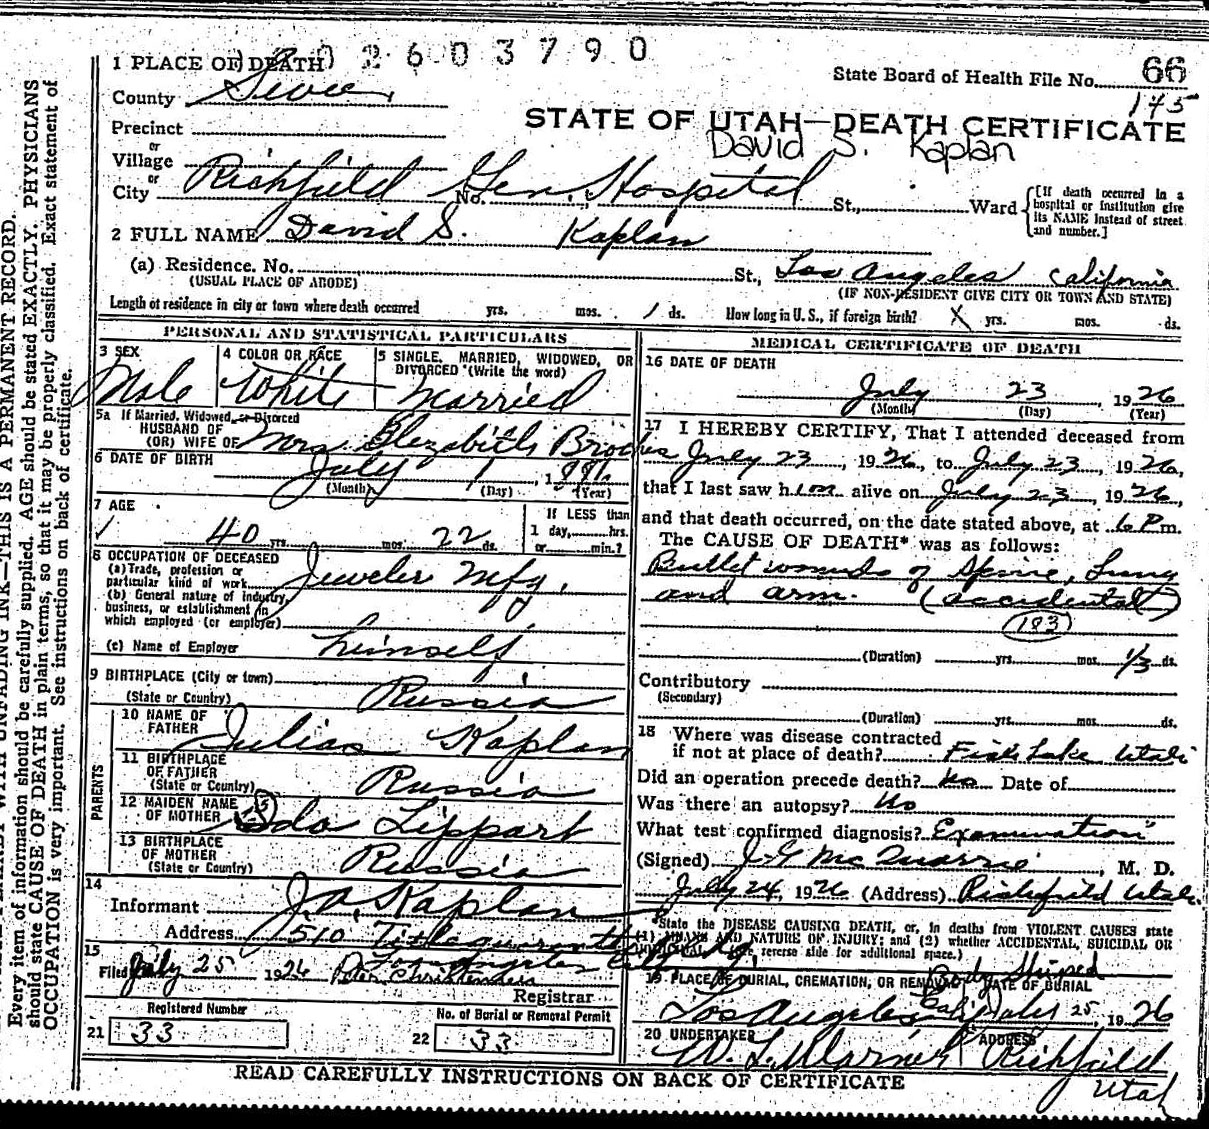 0 2 6 0 3 7 9 0
1 PLACE OF DEATH
State Board of Health File No. 66
County Sevier
145
STATE OF UTAH—DEATH CERTIFICATE
Precinct
David S. Kaplan
or
Village
or
City Richfield No. Gen. Hospital St., Ward
[If death occurred in a hospital or institution give its NAME instead of street and number.]
2 FULL NAME David S. Kaplan
(a) Residence. No. St., Los Angeles California
(USUAL PLACE OF ABODE) (IF NON-RESIDENT GIVE CITY OR TOWN AND STATE)
Length of residence in city or town where death occurred yrs. mos. 1 ds. How long in U. S., if foreign birth? X yrs. mos. ds.
PERSONAL AND STATISTICAL PARTICULARS
3 SEX
Male
4 COLOR OR RACE
White
5 SINGLE, MARRIED, WIDOWED, OR DIVORCED (Write the word)
Married
5a If Married, Widowed, or Divorced
HUSBAND OF
(OR) WIFE OF Mrs. Elezabith
6 DATE OF BIRTH
July 1, 1886
(Month) (Day) (Year)
7 AGE
40 yrs. mos. 22 ds.
If LESS than
1 day, hrs.
or min.?
8 OCCUPATION OF DECEASED
(a) Trade, profession or
particular kind of work Jeweler Mfg.
(b) General nature of industry,
business, or establishment in
which employed (or employer)
(c) Name of Employer himself
9 BIRTHPLACE (City or town)
(State or Country) Russia
PARENTS
10 NAME OF
FATHER Julias Kaplan
11 BIRTHPLACE
OF FATHER
(State or Country) Russia
12 MAIDEN NAME
OF MOTHER Ida Lippart
13 BIRTHPLACE
OF MOTHER
(State or Country) Russia
14
Informant J. A. Kaplan
Address 510 Title
Los Angeles
15
Filed July 25 1926 Peter Christensen
Registrar
Registered Number
21 33
No. of Burial or Removal Permit
22 33
MEDICAL CERTIFICATE OF DEATH
16 DATE OF DEATH
July 23 1926
(Month) (Day) (Year)
17 I HEREBY CERTIFY, That I attended deceased from
July 23, 1926, to July 23, 1926,
that I last saw him alive on July 23, 1926,
and that death occurred, on the date stated above, at 6 P m.
The CAUSE OF DEATH* was as follows:
Bullet wounds of Spine, Lung
and arm. (accidental)
183
(Duration) yrs. mos. 1/3 ds.
Contributory
(Secondary)
(Duration) yrs. mos. ds.
18 Where was disease contracted
if not at place of death? Fish Lake Utah
Did an operation precede death? No Date of
Was there an autopsy? No
What test confirmed diagnosis? Examination
(Signed) J. G. McQuarrie, M. D.
July 24, 1926 (Address) Richfield Utah.
*State the DISEASE CAUSING DEATH, or, in deaths from VIOLENT CAUSES state
(1) MEANS AND NATURE OF INJURY; and (2) whether ACCIDENTAL, SUICIDAL OR
reverse side for additional space.)
Body Shiped
19 PLACE OF BURIAL, CREMATION, OR REMOVAL DATE OF BURIAL
Los Angeles Cali July 25, 1926
20 UNDERTAKER ADDRESS
W. L. Warner Richfield
Utah
READ CAREFULLY INSTRUCTIONS ON BACK OF CERTIFICATE
WITH UNFADING INK—THIS IS A PERMANENT RECORD.
Every item of information should be carefully supplied. AGE should be stated EXACTLY. PHYSICIANS
should state CAUSE OF DEATH in plain terms, so that it may be properly classified. Exact statement of
OCCUPATION is very important. See instructions on back of certificate.